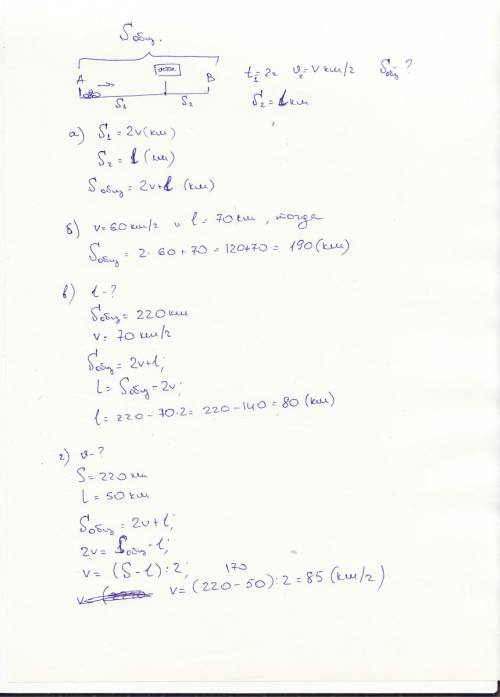 Sобщ.
A ост. B
S₁ S₂
t₁=2ч v₁=v км/ч Sобщ-?
S₂=l км
а) S₁=2v(км)
S₂=l (км)
Sобщ=2v+l (км)
б) v=60км/ч и l=70км, тогда
Sобщ=2·60+70=120+70=190(км)
в) l-?
Sобщ=220км
v=70км/ч
Sобщ=2v+l;
l=Sобщ-2v;
l=220-70·2=220-140=80(км)
г) v-?
S=220км
l=50км
Sобщ=2v+l;
2v=Sобщ-l;
v=(S-l):2;
170
v=(220-50):2=85(км/ч)